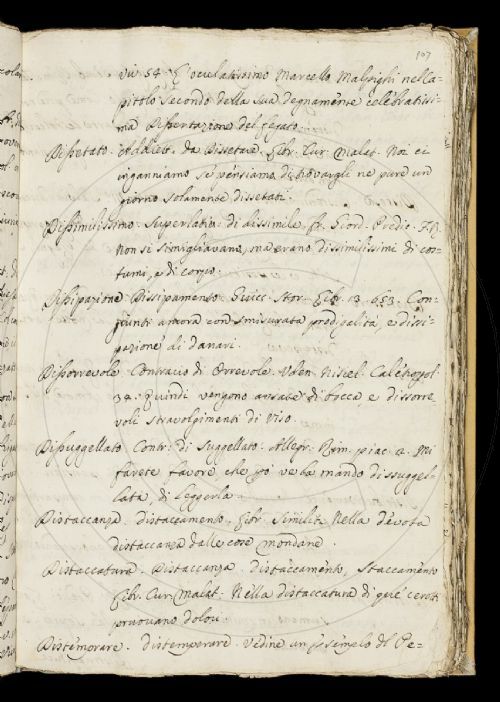 107
viv. 54. E l'oculatissimo Marcello Malpighi nella
pitolo secondo della sua degnamente celebratissi-
ma Dissertazione del fegato.
Dissetato. Addiett. da Dissetare. Libr. Cur. Malat. Noi ci
inganniamo se pensiamo di trovargli ne pure un
giorno solamente dissetati.
Dissimilissimo. Superlativ. di dissimile. Fr. Giord. Predic.
Non si somigliavano, ma erano dissimilissimi di co-
tumi, e di corpo.
Dissipazione. Dissipamento. Guicc. Stor. Libr. 13. 653. Con-
giunti ancora con smisurata prodigalità, e dissi-
pazione di danari.
Dissorrevole. Contrario di Orrevole. Uden. Nisiel.
32. Quindi vengono ansate di bocca e dissorre
voli stravolgimenti di viso.
Dissuggellato. Contr. di Suggellato. Allegr. Rim. piac. 2. Mi
farete favore che poi ve la mando dissuggel-
lata, di leggerla.
Distaccanza. distaccamento. Libr. Similit. Nella devota
distaccanza dalle cose mondane.
Distaccatura. Distaccanza. distaccamento, staccamento
Libr. Cur. Malat. Nella distaccatura di que' cerotti
pruovano dolori.
Distemprare. distemperare. Vedine un esemplo di Pe-